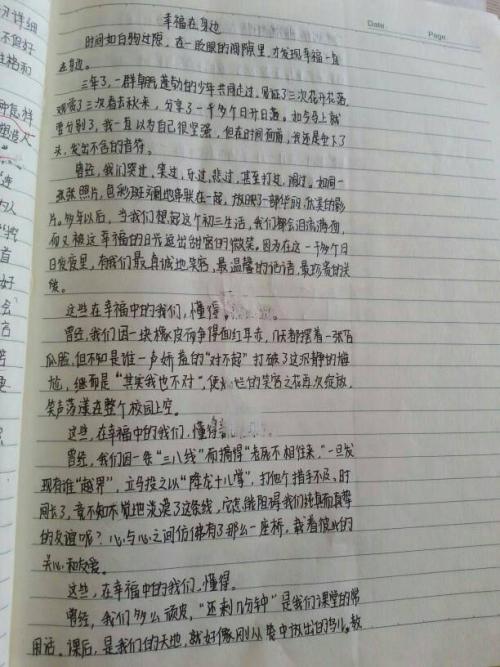 Date
Page
幸福在身边
时间如白驹过隙,在一眨眼的间隙里,才发现幸福一直
在身边。
三年了,一群朝气蓬勃的少年共同走过,见证了三次花开花落,
观赏了三次春去秋来,分享了一千多个日升日落。如今马上就
要分别了,我一直以为自己很坚强,但在时间面前,我还是垂下了
头,发出不舍的音符。
曾经,我们哭过,笑过,乐过,悲过,甚至打过,闹过。如同一
张张照片,色彩斑斓地串联在一起,放映了一部华丽,优美的影
片。多年以后,当我们想起这个初三生活,我们都会泪流满面,
而又被这幸福的日光逗出甜蜜的微笑。因为在这一千多个日
日夜夜里,有我们最真诚地笑容,最温馨的话语,最珍贵的关
怀。
这些在幸福中的我们,懂得
曾经,我们因一块橡皮而争得面红耳赤,几天都摆着一张苦
瓜脸,但不知是谁一声娇羞的“对不起”打破了这沉静的尴
尬,继而是“其实我也不对”,使 烂的笑容之花再次绽放,
笑声荡漾在整个校园上空。
这些,在幸福中的我们,懂得
曾经,我们因一条“三八线”而搞得“老死不相往来,”一旦发
现有谁“越界”,立马投之以“降龙十八掌”,打他个措手不及。时
间长了,竟不知不觉地淡漠了这条线,它怎能阻碍我们纯真而真挚
的友谊呢?心与心之间仿佛有了那么一座桥,载着彼此的
关心和友爱。
这些,在幸福中的我们,懂得。
曾经,我们多么顽皮,“还剩几分钟”是我们课堂的常
用语。课后,是我们的天地,就好像刚从笼中放出的鸟儿。教